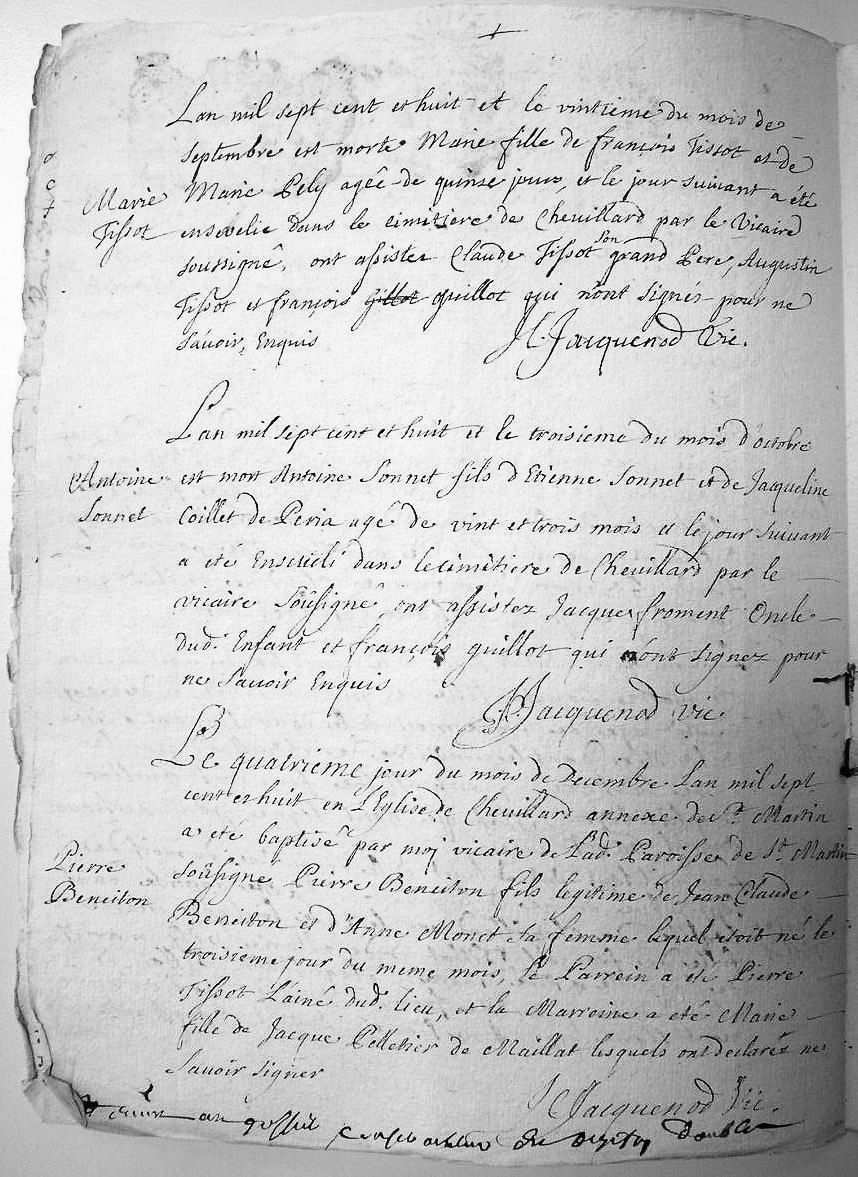 Lan mil sept cent et huit et le vintieme du mois de
septembre est morte Marie fille de françois Tissot et de
Marie Pely agée de quinze jours, et le jour suivant a été
Marie
Tissot
ensevelie dans le cimitiere de Chevillard par le Vicaire
soussigné, ont assister Claude Tissot son grand Pere, Augustin
Tissot et françois guillot qui n'ont signés pour ne
savoir, Enquis
Jacquenod Vic.
Lan mil sept cent et huit et le troisieme du mois d'octobre
Antoine
Sonnet
est mort Antoine Sonnet fils d'Etienne Sonnet et de Jacqueline
Coillet de Peria agé de vint et trois mois et le jour suivant
a été Enseveli dans le cimitiere de Chevillard par le
vicaire soûsigné ont assistez Jacque froment Oncle
dud. Enfant et françois guillot qui n'ont signez pour
ne savoir Enquis
Jacquenod vic.
Le quatrieme jour du mois de Decembre Lan mil sept
cent et huit en L'Eglise de Chevillard annexe de St. Martin
a eté baptisé par moj vicaire de Lad. Paroisse de St. Martin
Pierre
Beneiton
soûsigne Pierre Beneiton fils legitime de Jean Claude
Beneiton et d'Anne Monet sa femme lequel etoit né le
troisieme jour du meme mois, le Parrein a eté Pierre
Tissot L'ainé dud. lieu, et la Marreine a eté Marie
fille de Jacque Pelletier de Maillat lesquels ont declarés ne
savoir signer
Jacquenod Vic.